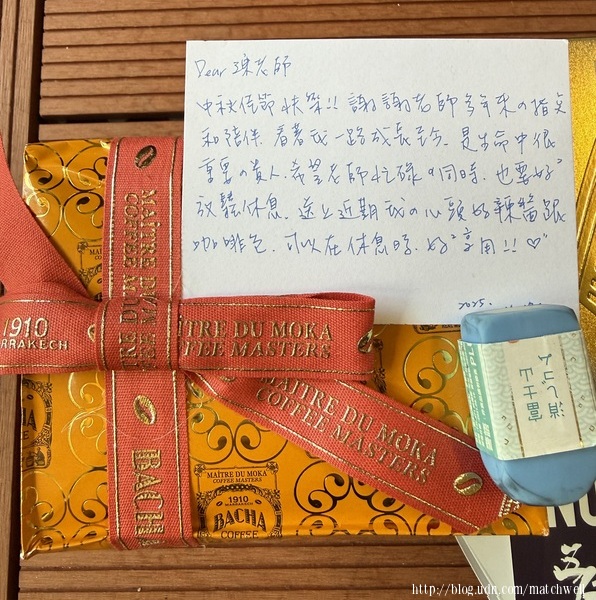 Dear 老師
中秋佳節快樂!! 謝謝老師多年來の指
和陪伴,看著我一路成長至今,是生命中很
重要の貴人,希望老師忙碌の同時,也要好〃
放鬆休息,送上近期我の心頭好辣醬跟
咖啡包,可以在休息時,好〃享用!! ♡
2025.
MAÎTRE DU MOKA
COFFEE MASTERS
1910
MARRAKECH
MAÎTRE DU MOKA
COFFEE MASTERS
MAÎTRE DU MOKA
COFFEE MASTERS
BACHA
MAÎTRE DU MOKA
COFFEE MASTERS
1910
BACHA
COFFEE
富士山
消しゴム
NO
http://blog.udn.com/matchwei